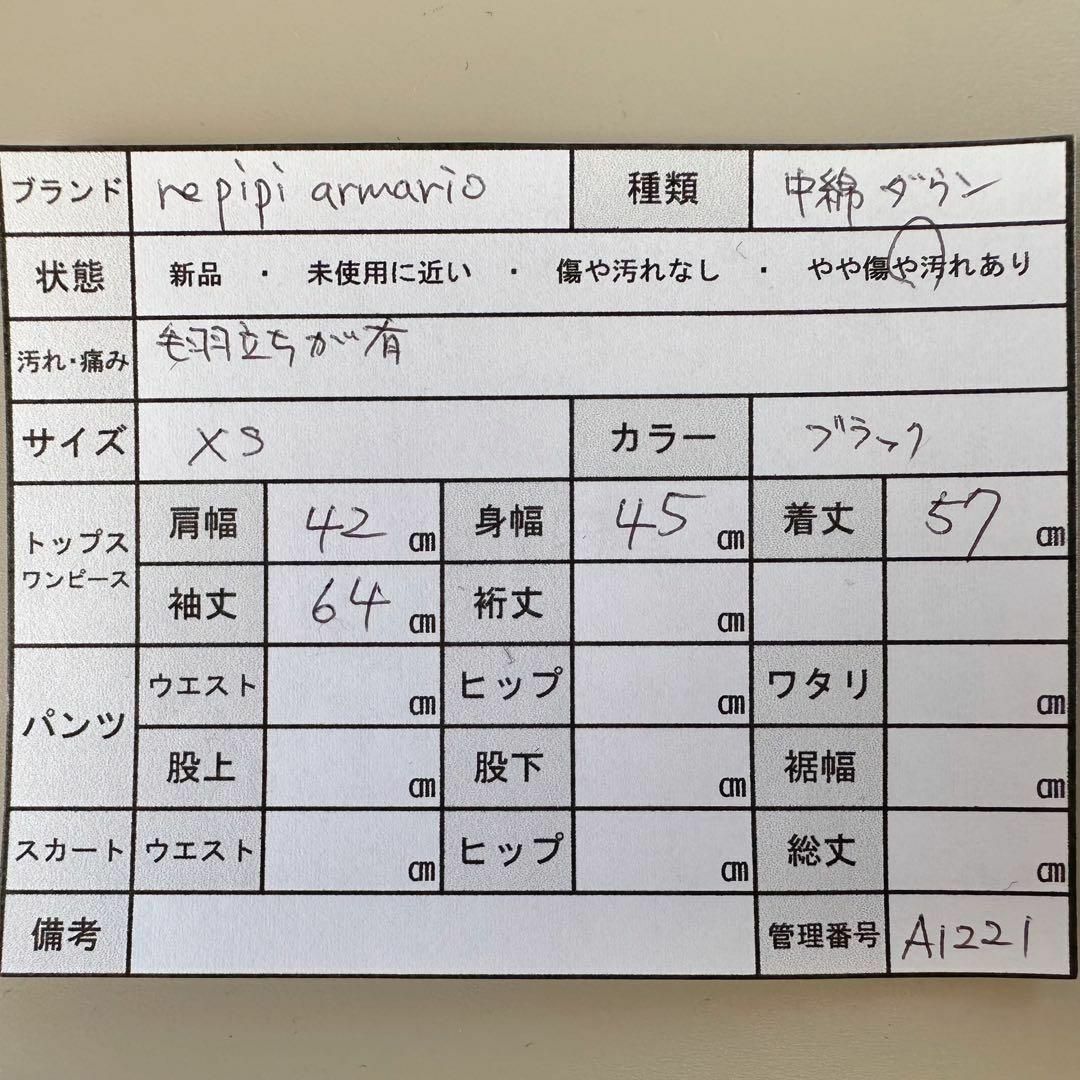 ブランド repipi armario 種類 中綿 ダウン
状態 新品 ・ 未使用に近い ・ 傷や汚れなし ・ やや傷や汚れあり
汚れ・痛み 毛羽立ちが有
サイズ XS カラー ブラック
トップス ワンピース 肩幅 42 ㎝ 身幅 45 ㎝ 着丈 57 ㎝
袖丈 64 ㎝ 裄丈 ㎝
パンツ ウエスト ㎝ ヒップ ㎝ ワタリ ㎝
股上 ㎝ 股下 ㎝ 裾幅 ㎝
スカート ウエスト ㎝ ヒップ ㎝ 総丈 ㎝
備考 管理番号 A1221